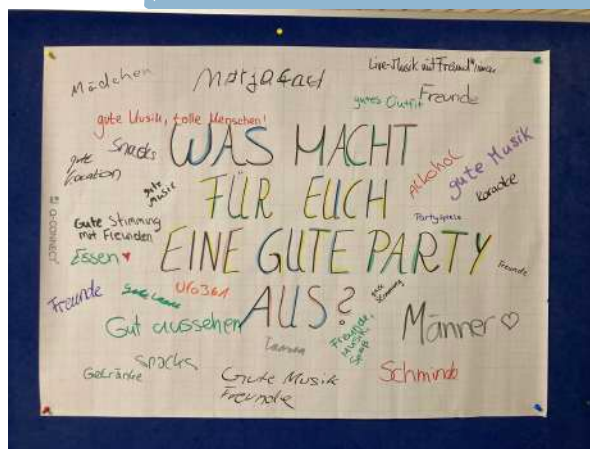 Mädchen
Live-Musik mit Freund*innen
gutes Outfit
Freunde
gute Musik, tolle Menschen!
Snacks
gute
Location
gute
Musik
WAS MACHT
FÜR EUCH
EINE GUTE PARTY
AUS?
Alkohol
gute Musik
Karaoke
Partyspiele
Q-CONNECT
Gute Stimmung
mit Freunden
Essen
Freunde
gute Laune
Freunde
gute
Stimmung
Gut aussehen
Freunde,
Musik,
Spaß
Männer
Snacks
Getränke
Gute Musik
Freunde